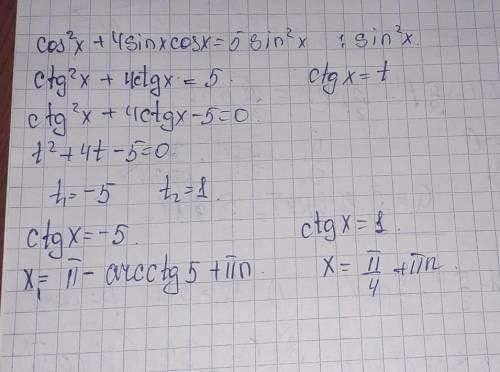 cos²x + 4sinxcosx = 5 sin²x : sin²x.
ctg²x + 4ctgx = 5. ctg x = t
ctg²x + 4ctgx - 5 = 0.
t² + 4t - 5 = 0.
t₁ = -5 t₂ = 1.
ctg x = -5. ctg x = 1.
x₁ = π - arcctg 5 + πn. x = π/4 + πn.